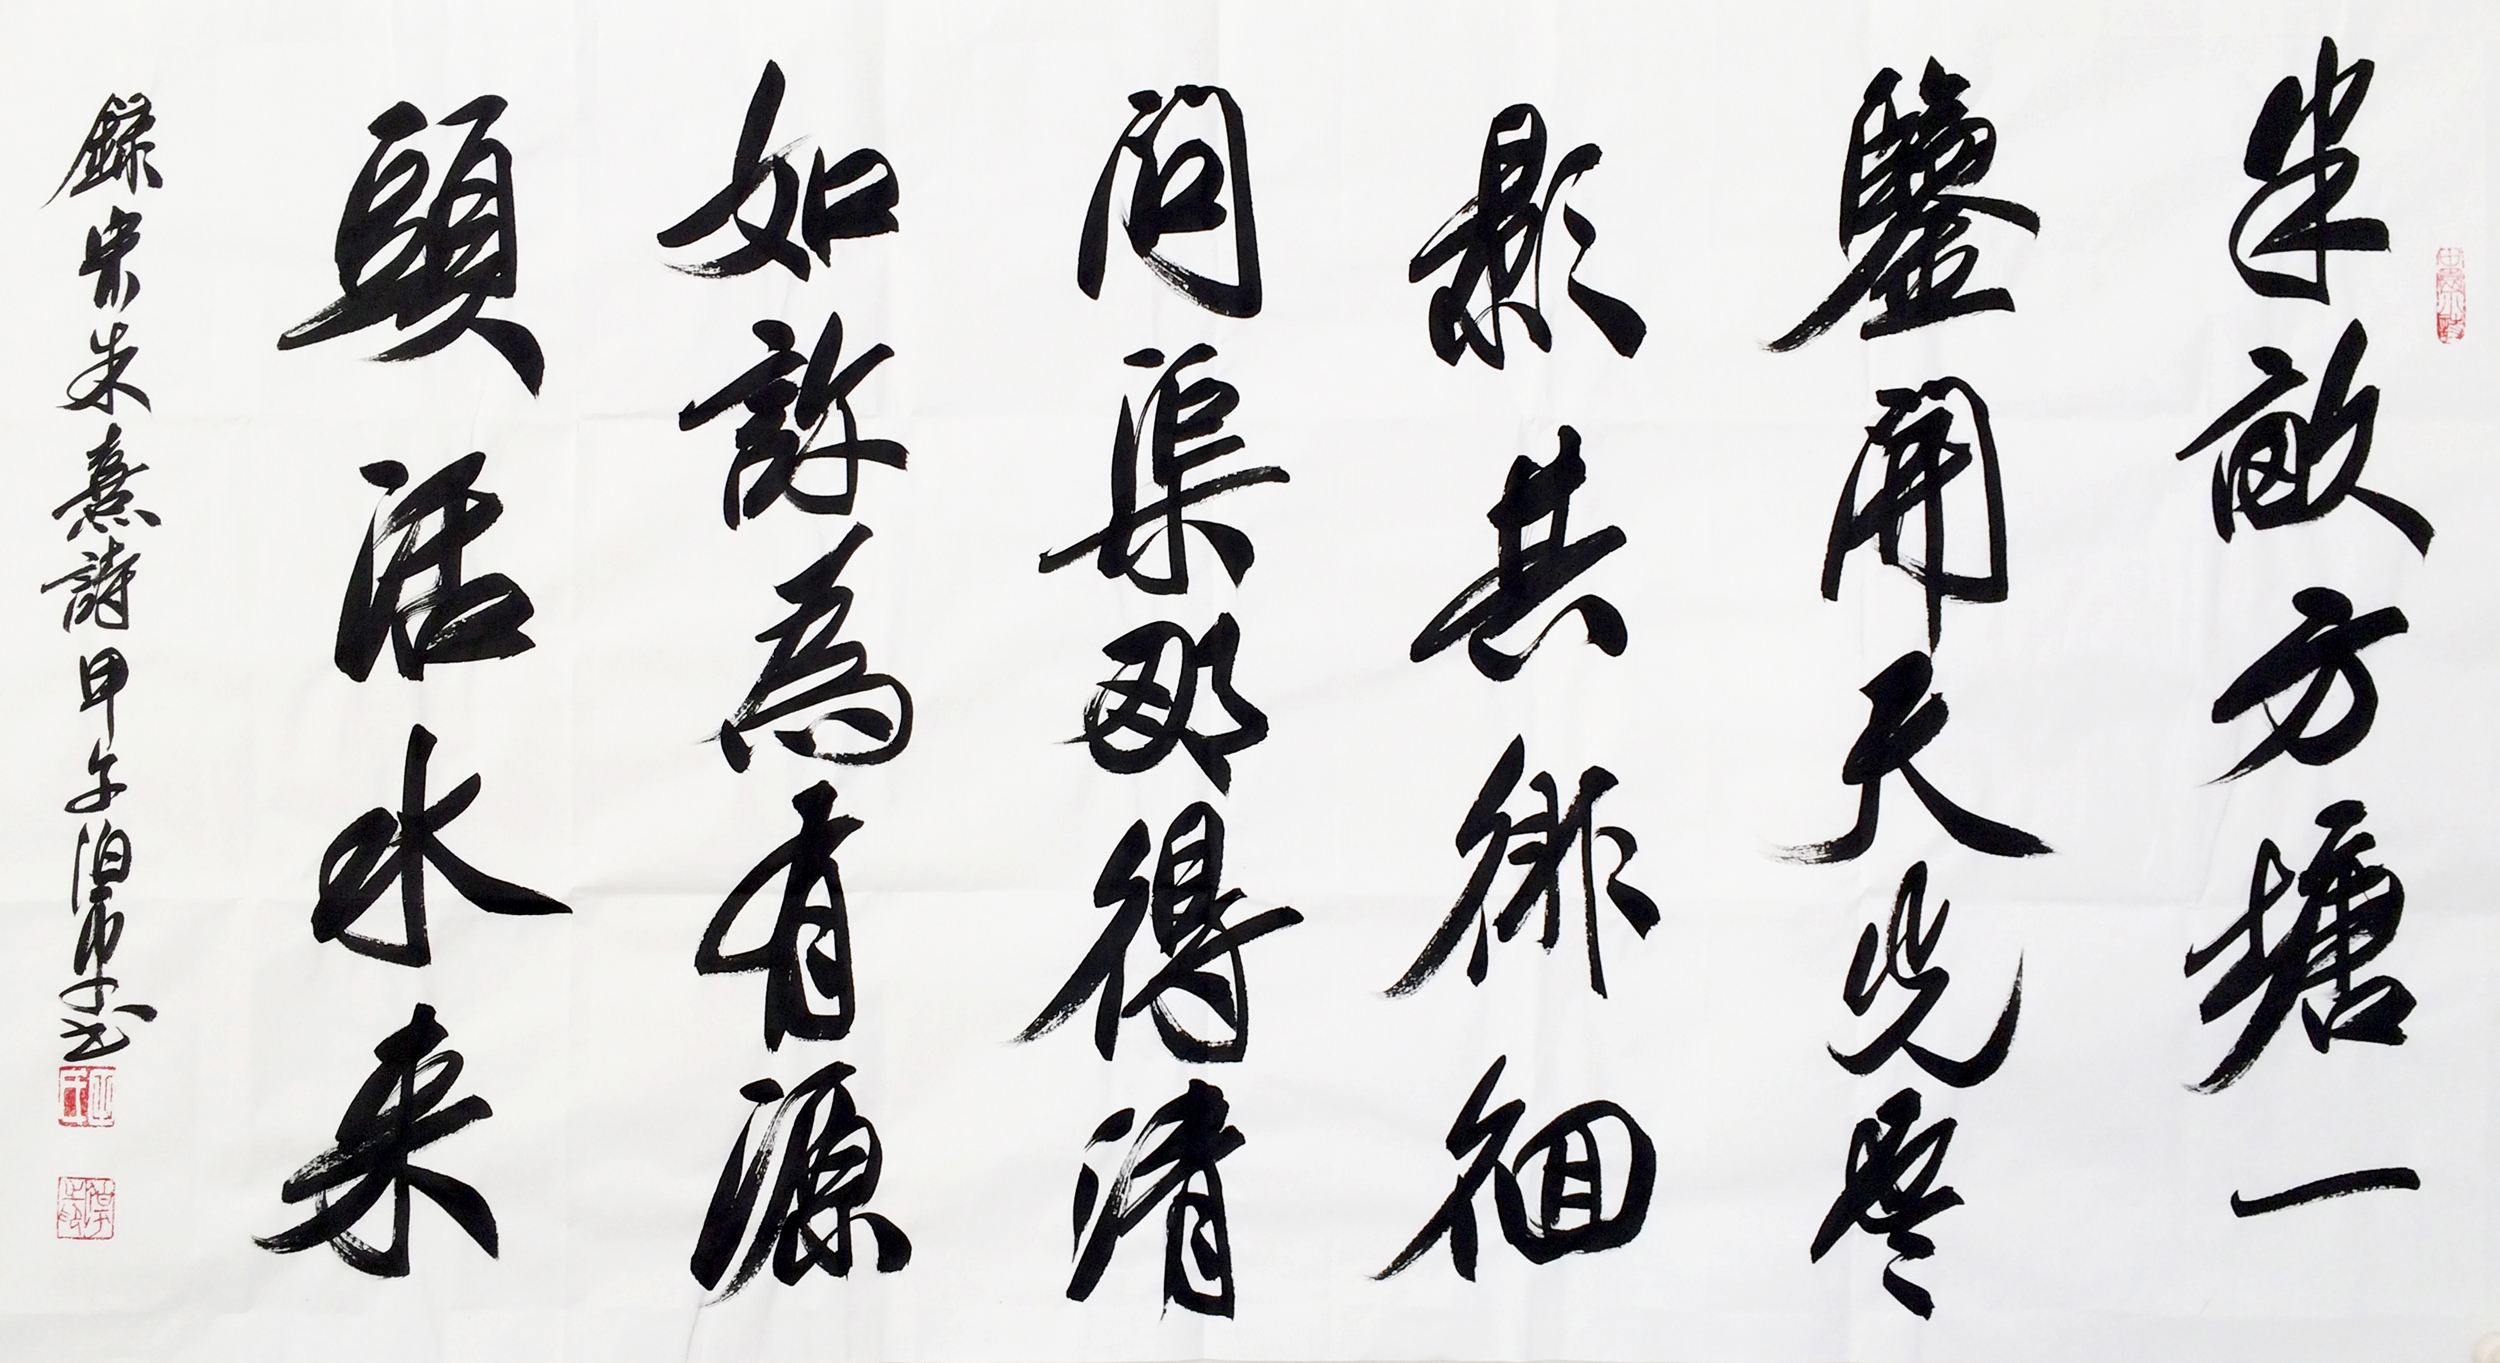 半畝方塘一
鑒開天光雲
影共徘徊
問渠那得清
如許為有源
頭活水来
錄宋朱熹詩甲午泊书